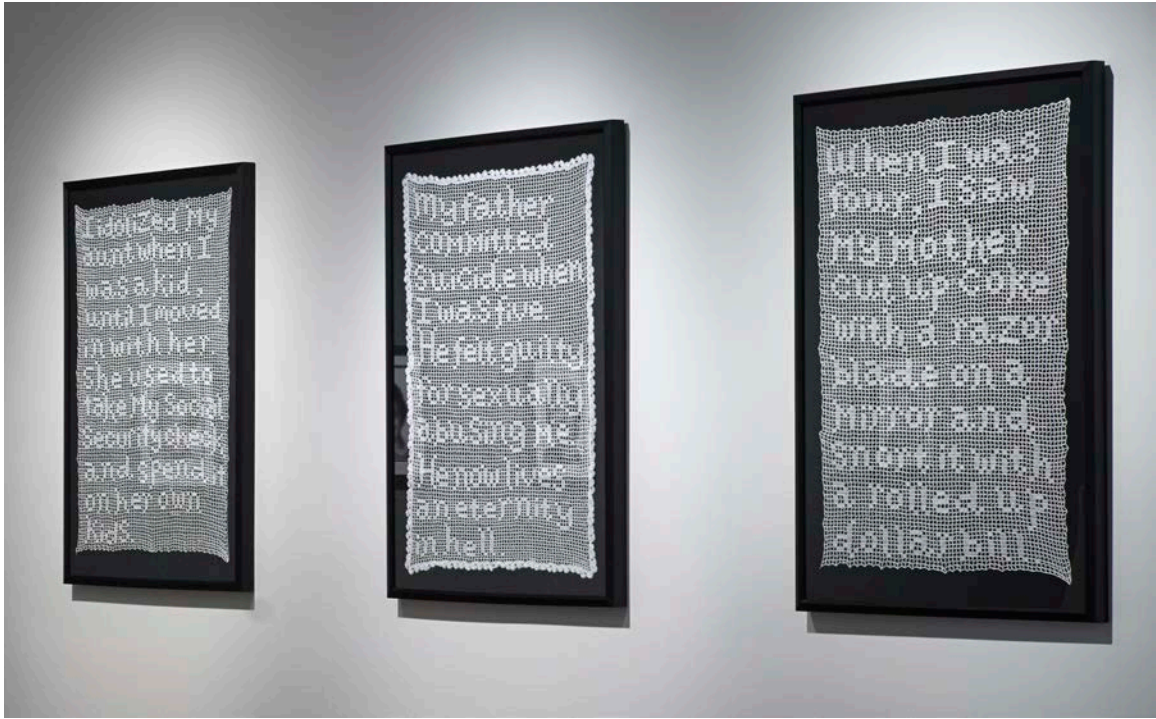 I idolized My
aunt when I
was a kid,
until I moved
in with her.
She used to
take My Social
Security check
and spend it
on her own
kids.
My father
committed
Suicide when
I was five.
He felt guilty
for sexually
abusing Me.
He now lives
an eternity
in hell.
When I was
four, I saw
My Mother
cut up Coke
with a razor
blade on a
Mirror and
snort it with
a rolled up
dollar bill